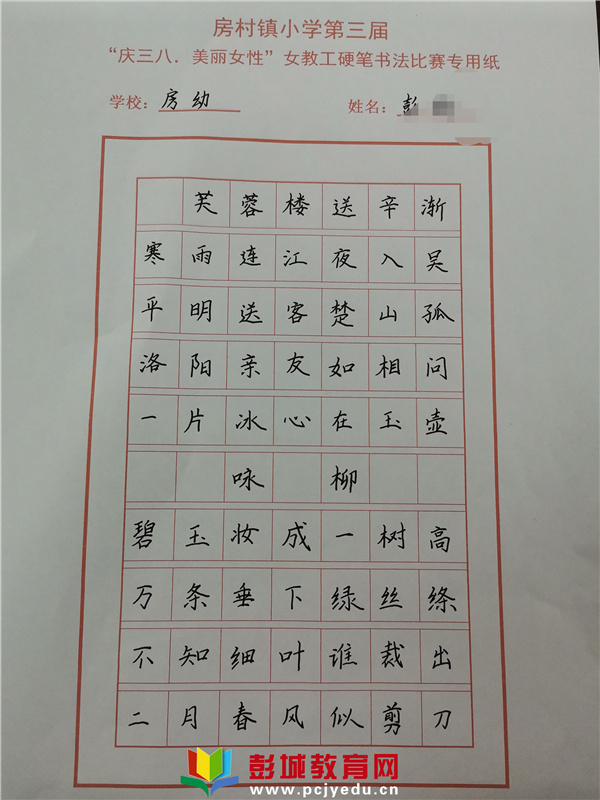 房村镇小学第三届
“庆三八．美丽女性”女教工硬笔书法比赛专用纸
学校：房幼 姓名：彭
芙蓉楼送辛渐
寒雨连江夜入吴
平明送客楚山孤
洛阳亲友如相问
一片冰心在玉壶
咏柳
碧玉妆成一树高
万条垂下绿丝绦
不知细叶谁裁出
二月春风似剪刀
彭城教育网
www.pcjyedu.cn